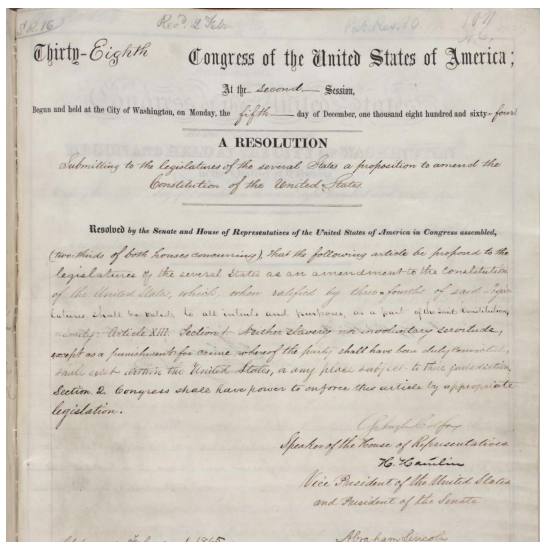 S.R. 16
Thirty-Eighth Congress of the United States of America;
At the second Session,
Begun and held at the City of Washington, on Monday, the fifth day of December, one thousand eight hundred and sixty-four
A RESOLUTION
Submitting to the legislatures of the several States a proposition to amend the
Constitution of the United States.
Resolved by the Senate and House of Representatives of the United States of America in Congress assembled,
(two-thirds of both houses concurring), that the following article be proposed to the
legislatures of the several States as an amendment to the Constitution
of the United States, which, when ratified by three-fourths of said Legis-
latures shall be valid, to all intents and purposes, as a part of the said Constitution,
namely: Article XIII. Section 1. Neither slavery nor involuntary servitude,
except as a punishment for crime whereof the party shall have been duly convicted,
shall exist within the United States, or any place subject to their jurisdiction.
Section 2. Congress shall have power to enforce this article by appropriate
legislation.
Speaker of the House of Representatives
H. Hamlin
Vice President of the United States
and President of the Senate
Abraham Lincoln